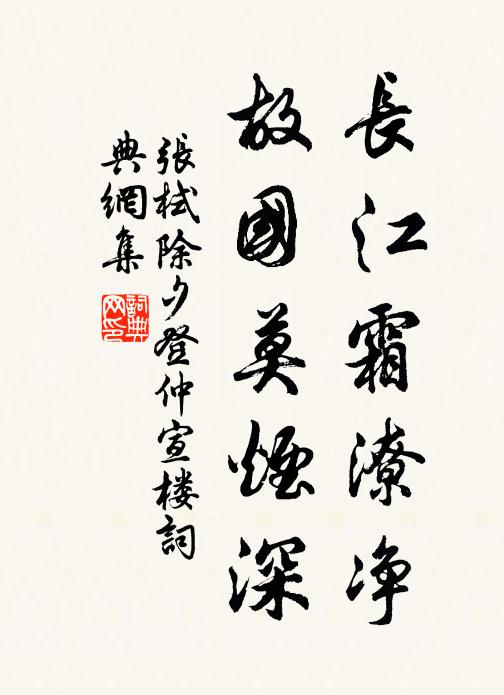 長江霜潦净
故國莫煙深
張栻除夕登仲宣楼詞
典網集
詞典网印